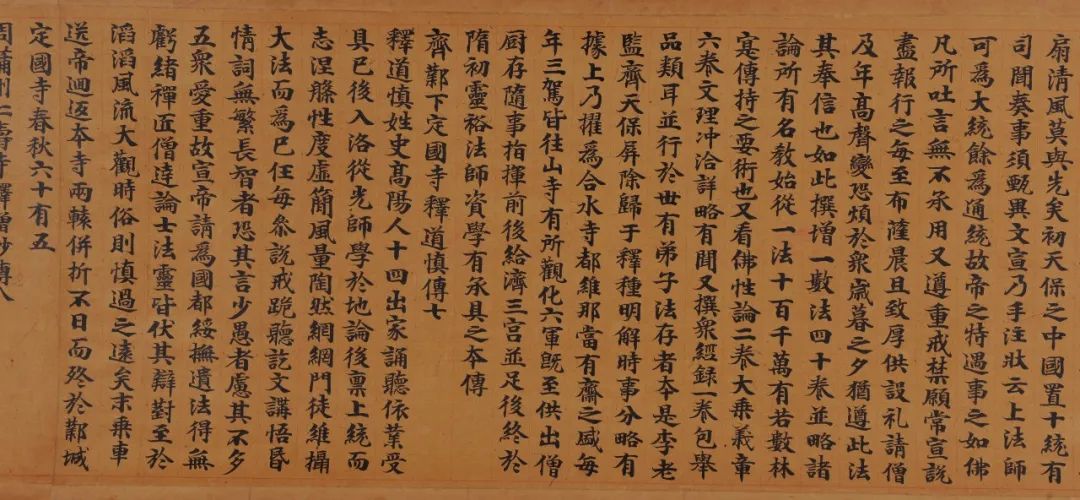 扇清風莫與先矣初天保之中國置十統有
司聞奏事須甄異文宣乃手注狀云上法師
可為大統餘為通統故帝之特遇事之如佛
凡所吐言無不承用又遵重戒禁願常宣説
盡報行之每至布薩晨旦致厚供設礼請僧
及年髙聲變恐煩於衆歳暮之夕猶遵此法
其奉信也如此撰増一數法四十卷並略諸
論所有名教始從一法十百千萬有若數林
寔傳持之要術也又看佛性論二卷大乗義章
六卷文理冲洽詳略有聞又撰衆經録一卷包舉
品類耳並行於世有弟子法存者本是李老
監齊天保屏除歸于釋種明解時事分略有
據上乃擢為合水寺都維那當有齋之盛每
年三駕皆往山寺有所觀化六軍既至供出僧
厨存隨事指揮前後給濟三宫並足後終於
隋初靈裕法師資學有承具之本傳
齊鄴下定國寺釋道慎傳七
釋道慎姓史髙陽人十四出家誦聽依業受
具已後入洛從光師學於地論後禀上統而
志涅槃性度虛簡風量陶然網網門徒維攝
大法而為已任每叅説戒跪聽訖文講悟昏
情詞無繁長智者恐其言少愚者慮其不多
五衆愛重故宣帝請為國都綏撫遺法得無
虧緒禪匠僧逹論士法靈皆伏其辯對至於
滔滔風流大觀時俗則慎過之遠矣末乗車
送帝迴返本寺兩轅併折不日而終於鄴城
定國寺春秋六十有五